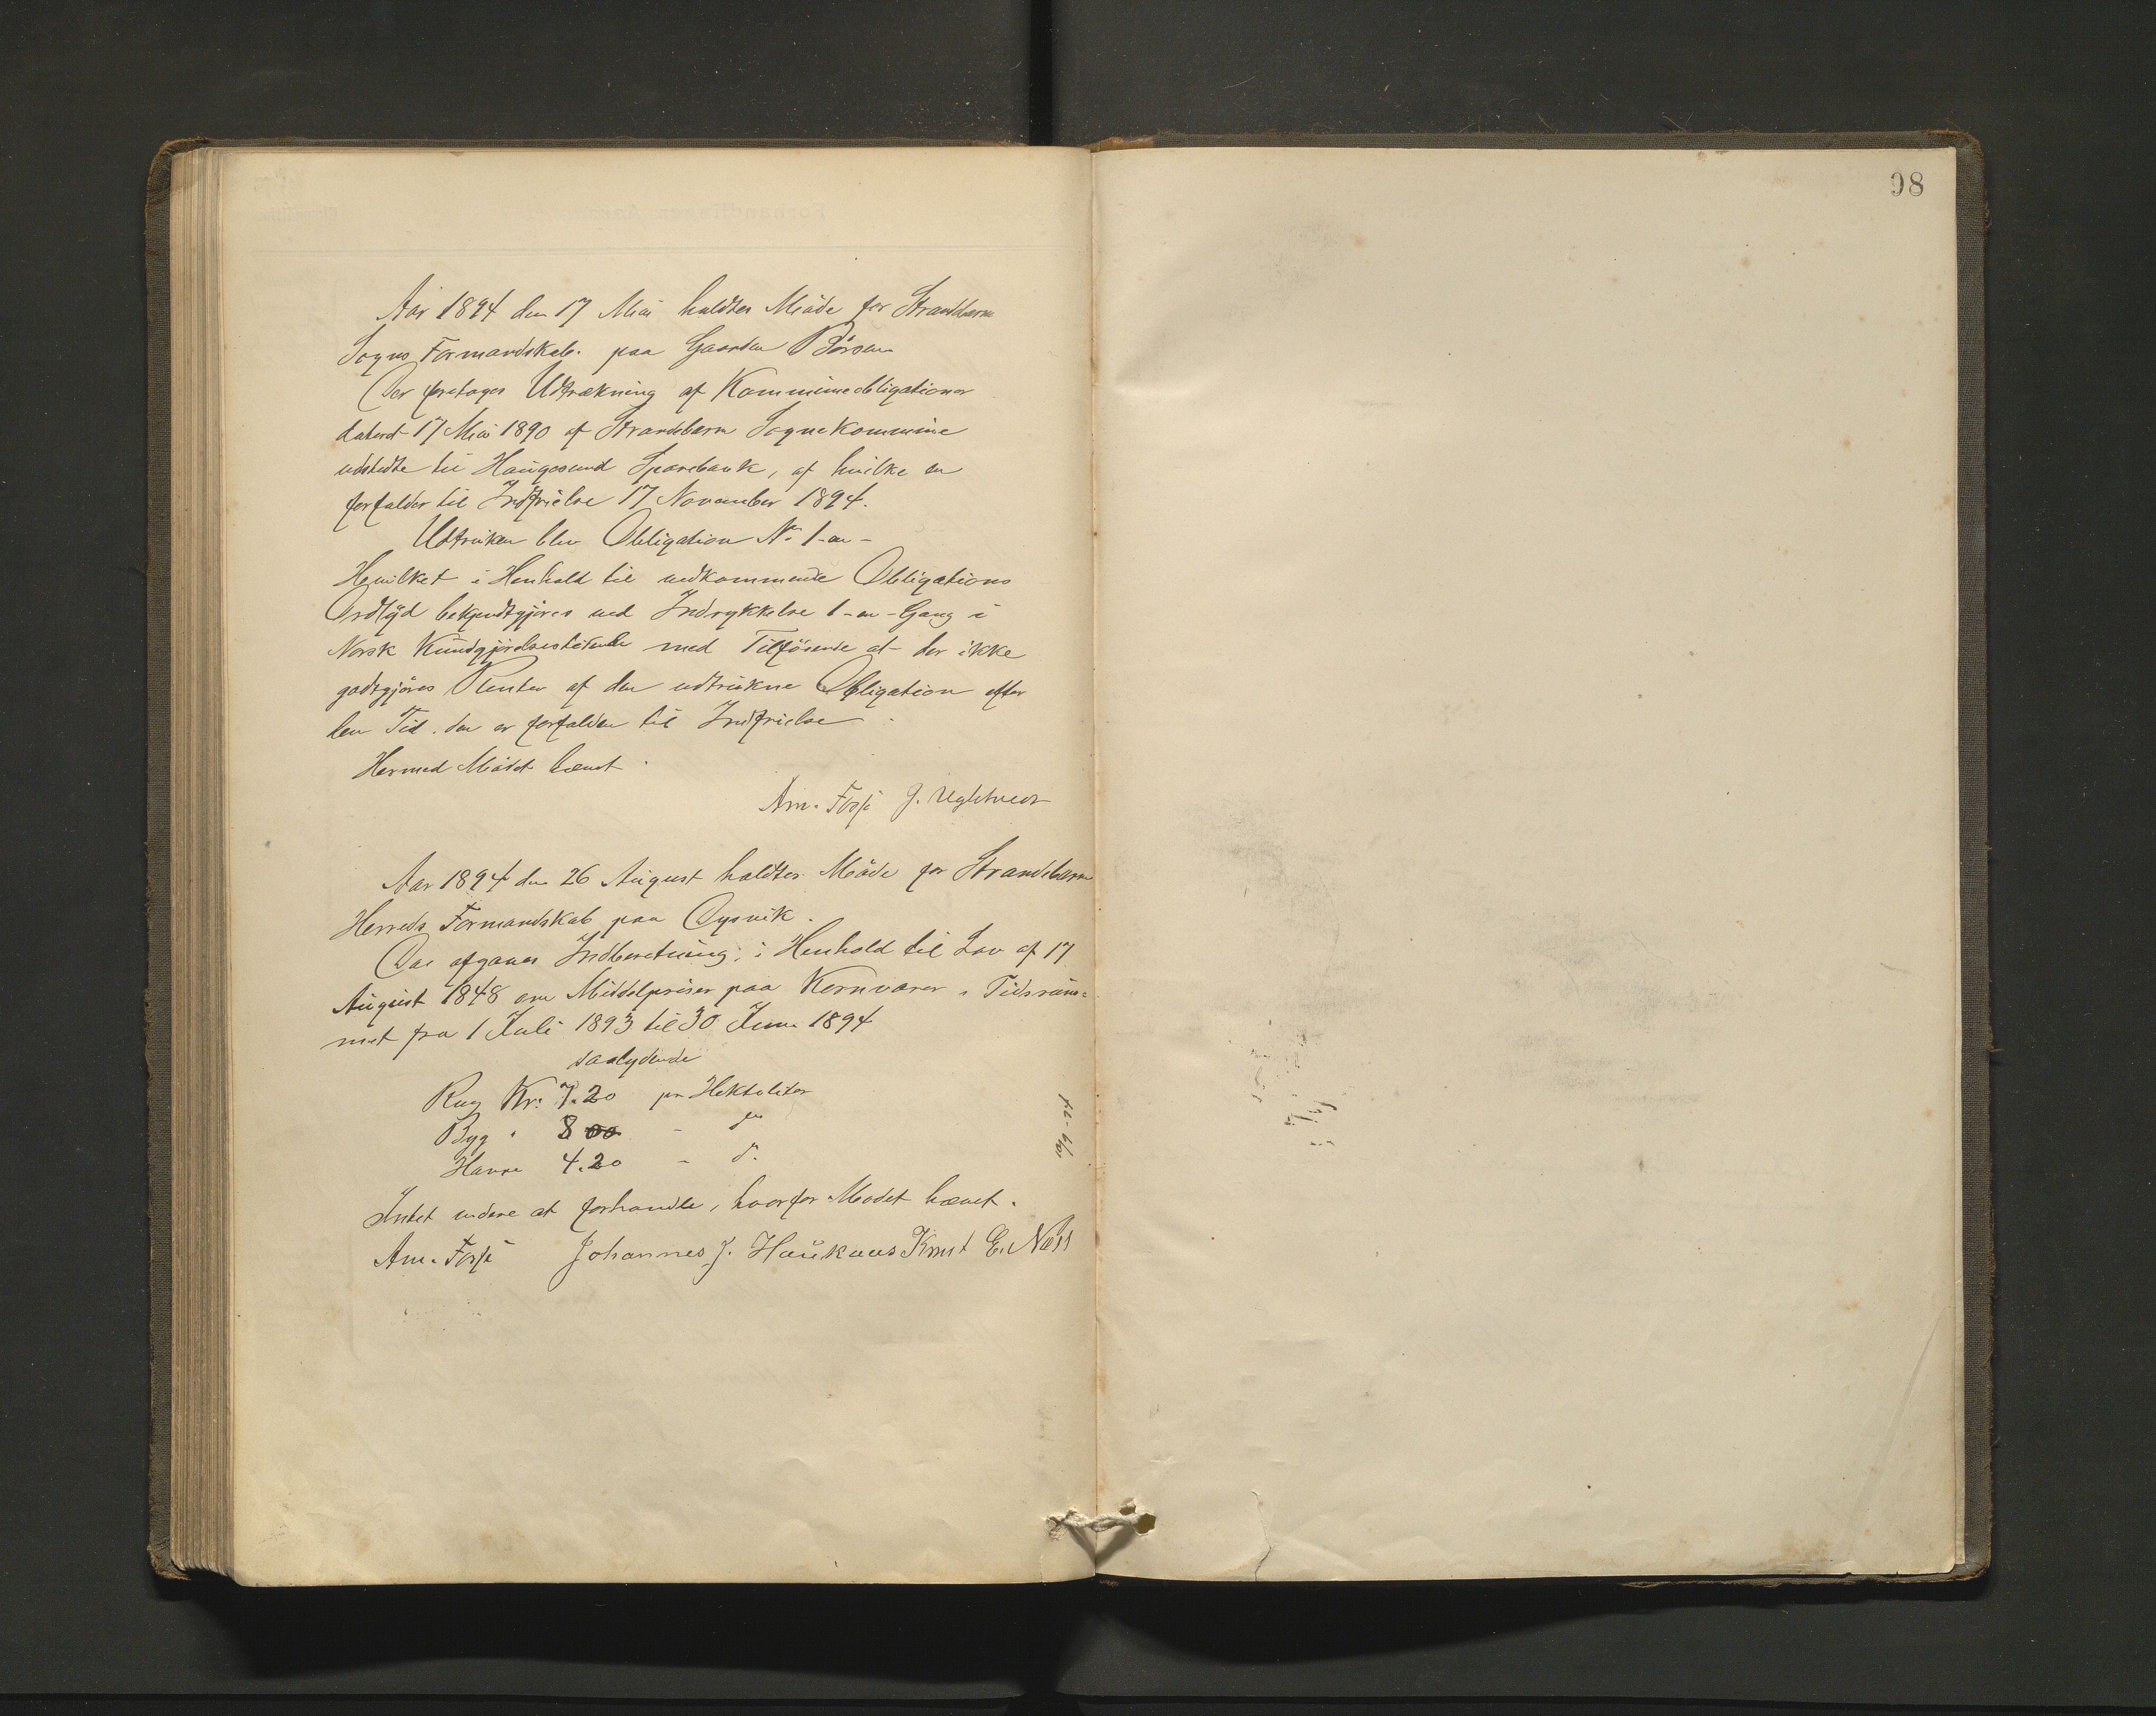 98
Aar 1894 den 17 Mai holdtes Møde for Strandebarm
Sogns Formandskab paa Gaarden Børsen
Der foretoges Udtrækning af Kommuneobligationer
dateret 17 Mai 1890 af Strandebarm Sognekommune
udstedte til Haugesund Sparebank, af hvilke en
forfalder til Indfrielse 17 November 1894.
Udtrukken blev Obligation No 1 - en -
Hvilket i Henhold til vedkommende Obligations
Ordlyd bekjendtgjøres ved Indrykkelse 1 - en - Gang i
Norsk Kundgjørelsestidende med Tilføiende at der ikke
godtgjøres Renter af den udtrukne Obligation efter
den Tid den er forfalden til Indfrielse.
Hermed Mødet hævet.
Am. Fosse J. Ugletveit
Aar 1894 den 26 August holdtes Møde for Strandebarm
Herreds Formandskab paa Oysvik.
Da afgaves Indberetning i Henhold til Lov af 17
August 1848 om Middelpriser paa Kornvarer i Tidsrum=
met fra 1 Juli 1893 til 30 Juni 1894
saalydende
Rug Kr. 7.20 pr Hektoliter
Byg " 8 00 -
Havre 4.20 - d.
Intet videre at forhandle, hvorfor Mødet hævet.
Am. Fosse Johannes J. Haukaas Knut E. Næss